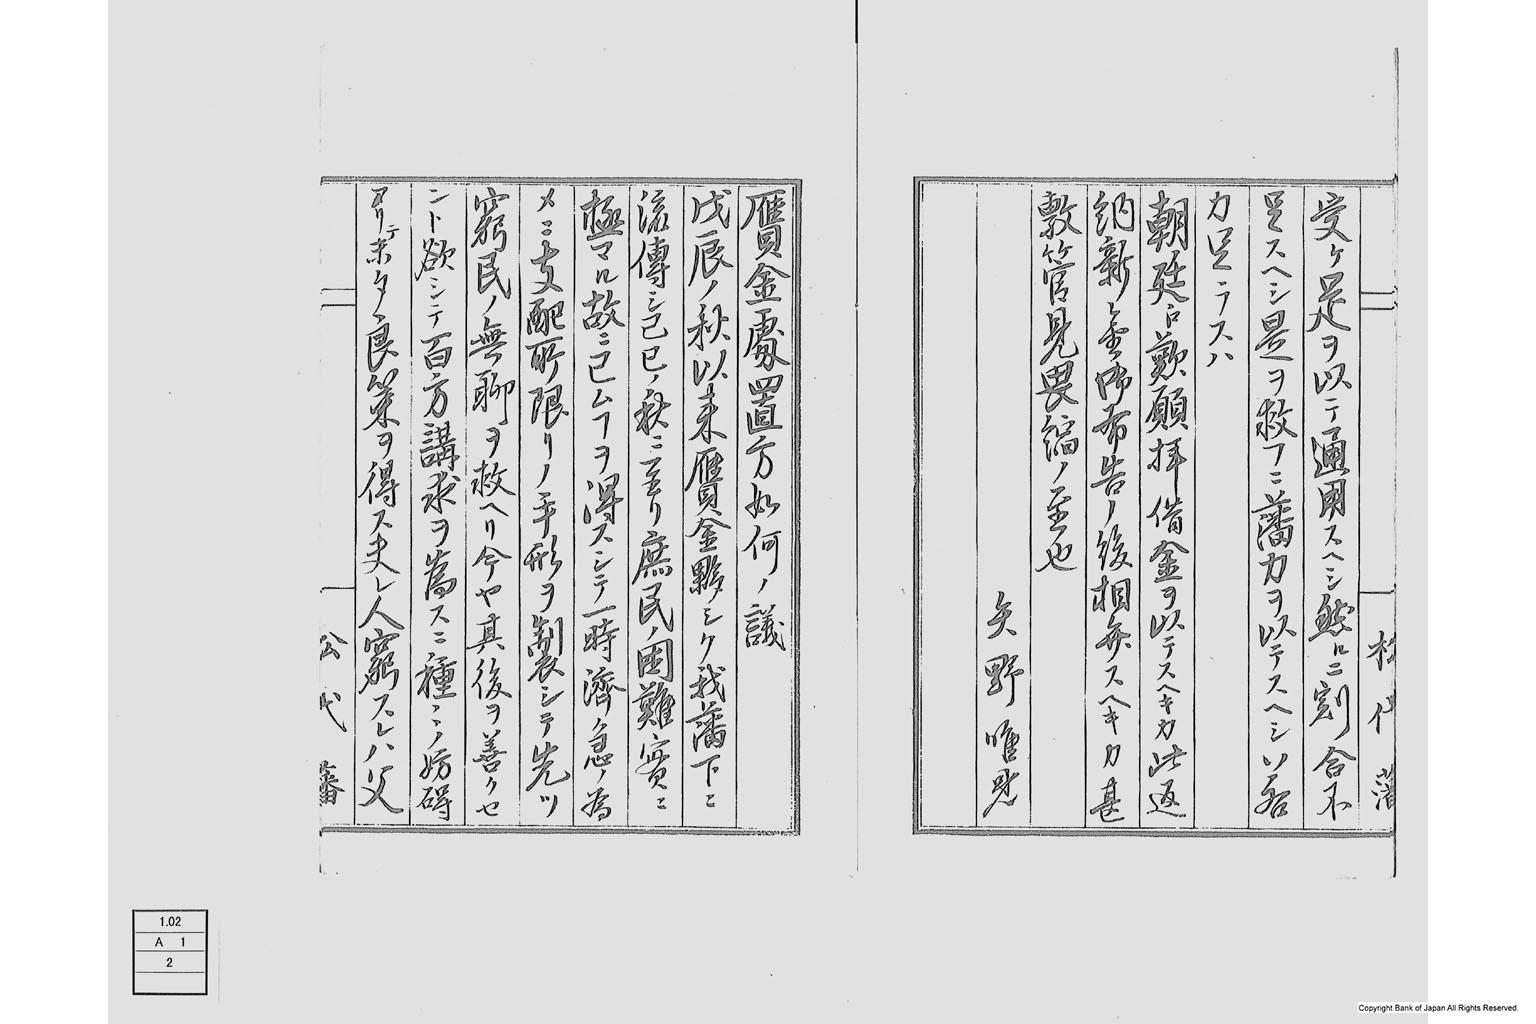 受ケ足ヲ以テ通用スヘシ然ルニ割合不
足スヘシ是ヲ救フニ藩力ヲ以テスヘシ若
力足ラスハ
朝廷ニ歎願拝借金ヲ以テスヘキカ此返
納新金御布告ノ後相弁スヘキカ甚
敷管見畏縮ノ至也
矢野唯見
松代藩
贋金處置方如何ノ議
戊辰ノ秋以来贋金夥シク我藩下ニ
流傳シ己巳ノ秋ニ至リ庶民ノ困難實ニ
極マル故ニ已ムヲ得スシテ一時濟急ノ為
メニ支配所限リノ手形ヲ製シテ先ツ
窮民ノ無聊ヲ救ヘリ今ヤ其後ヲ善クセ
ント欲シテ百方講求ヲ為スニ種ミノ妨碍
アリテ未タ良策ヲ得ス夫レ人窮スレハ父
松代藩
1.02
A 1
2
Copyright Bank of Japan All Rights Reserved.